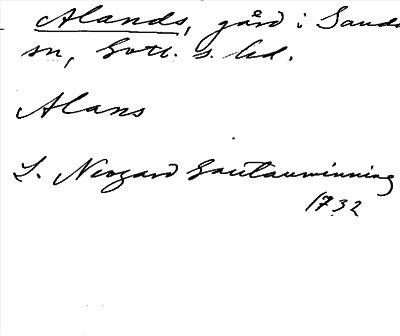 Alands, gård i Sande
sn, Gotl. s. hd.
Alans
L. Neogard Gautauminning
1732